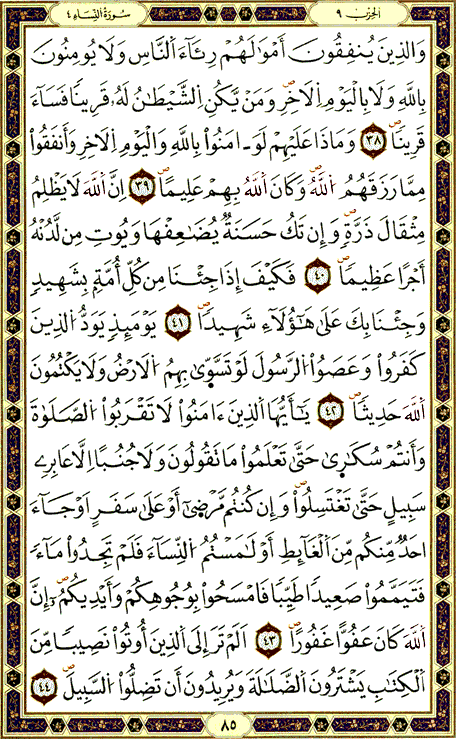 الحزب ٩
سورة النساء ٤
وَالذِينَ يُنفِقُونَ أَمْوَٰلَهُمْ رِئَآءَ اَلنَّاسِ وَلَا يُومِنُونَ
بِاللَّهِ وَلَا بِالْيَوْمِ اِلَاخِرِۖ وَمَنْ يَّكُنِ اِلشَّيْطَٰنُ لَهُۥ قَرِيناٗ فَسَآءَ
قَرِيناٗۖ ٣٨ وَمَاذَا عَلَيْهِمْ لَوَ اٰمَنُواْ بِاللَّهِ وَالْيَوْمِ اِلَاخِرِ وَأَنفَقُواْ
مِمَّا رَزَقَهُمُ اُللَّهُۖ وَكَانَ اَللَّهُ بِهِمْ عَلِيماًۖ ٣٩ اِنَّ اَللَّهَ لَا يَظْلِمُ
مِثْقَالَ ذَرَّةٖۖ وَإِن تَكُ حَسَنَةٌ يُضَٰعِفْهَا وَيُوتِ مِن لَّدُنْهُ
أَجْراً عَظِيماٗۖ ٤٠ فَكَيْفَ إِذَا جِئْنَا مِن كُلِّ أُمَّةِۢ بِشَهِيدٖ
وَجِئْنَا بِكَ عَلَىٰ هَٰٓؤُلَآءِ شَهِيداٗۖ ٤١ يَوْمَئِذٖ يَوَدُّ الذِينَ
كَفَرُواْ وَعَصَوُاْ اُلرَّسُولَ لَوْ تَسَّوّ۪ىٰ بِهِمُ اُلَارْضُ وَلَا يَكْتُمُونَ
اَللَّهَ حَدِيثاٗۖ ٤٢ يَٰٓأَيُّهَا اَلذِينَ ءَامَنُواْ لَا تَقْرَبُواْ اُلصَّلَوٰةَ
وَأَنتُمْ سُكَٰر۪ىٰ حَتَّىٰ تَعْلَمُواْ مَا تَقُولُونَ وَلَا جُنُباً اِلَّا عَابِرِے
سَبِيلٍ حَتَّىٰ تَغْتَسِلُواْۖ وَإِن كُنتُم مَّرْض۪ىٰٓ أَوْ عَلَىٰ سَفَرٍ اَوْ جَآءَ
احَدٌ مِّنكُم مِّنَ اَلْغَآئِطِ أَوْ لَٰمَسْتُمُ اُلنِّسَآءَ فَلَمْ تَجِدُواْ مَآءٗ
فَتَيَمَّمُواْ صَعِيداٗ طَيِّباٗ فَامْسَحُواْ بِوُجُوهِكُمْ وَأَيْدِيكُمُۥٓۖ إِنَّ
اَللَّهَ كَانَ عَفُوّاً غَفُوراًۖ ٤٣ اَلَمْ تَرَ إِلَى اَلذِينَ أُوتُواْ نَصِيباٗ مِّنَ
اَلْكِتَٰبِ يَشْتَرُونَ اَلضَّلَٰلَةَ وَيُرِيدُونَ أَن تَضِلُّواْ اُلسَّبِيلَۖ ٤٤
٨٥